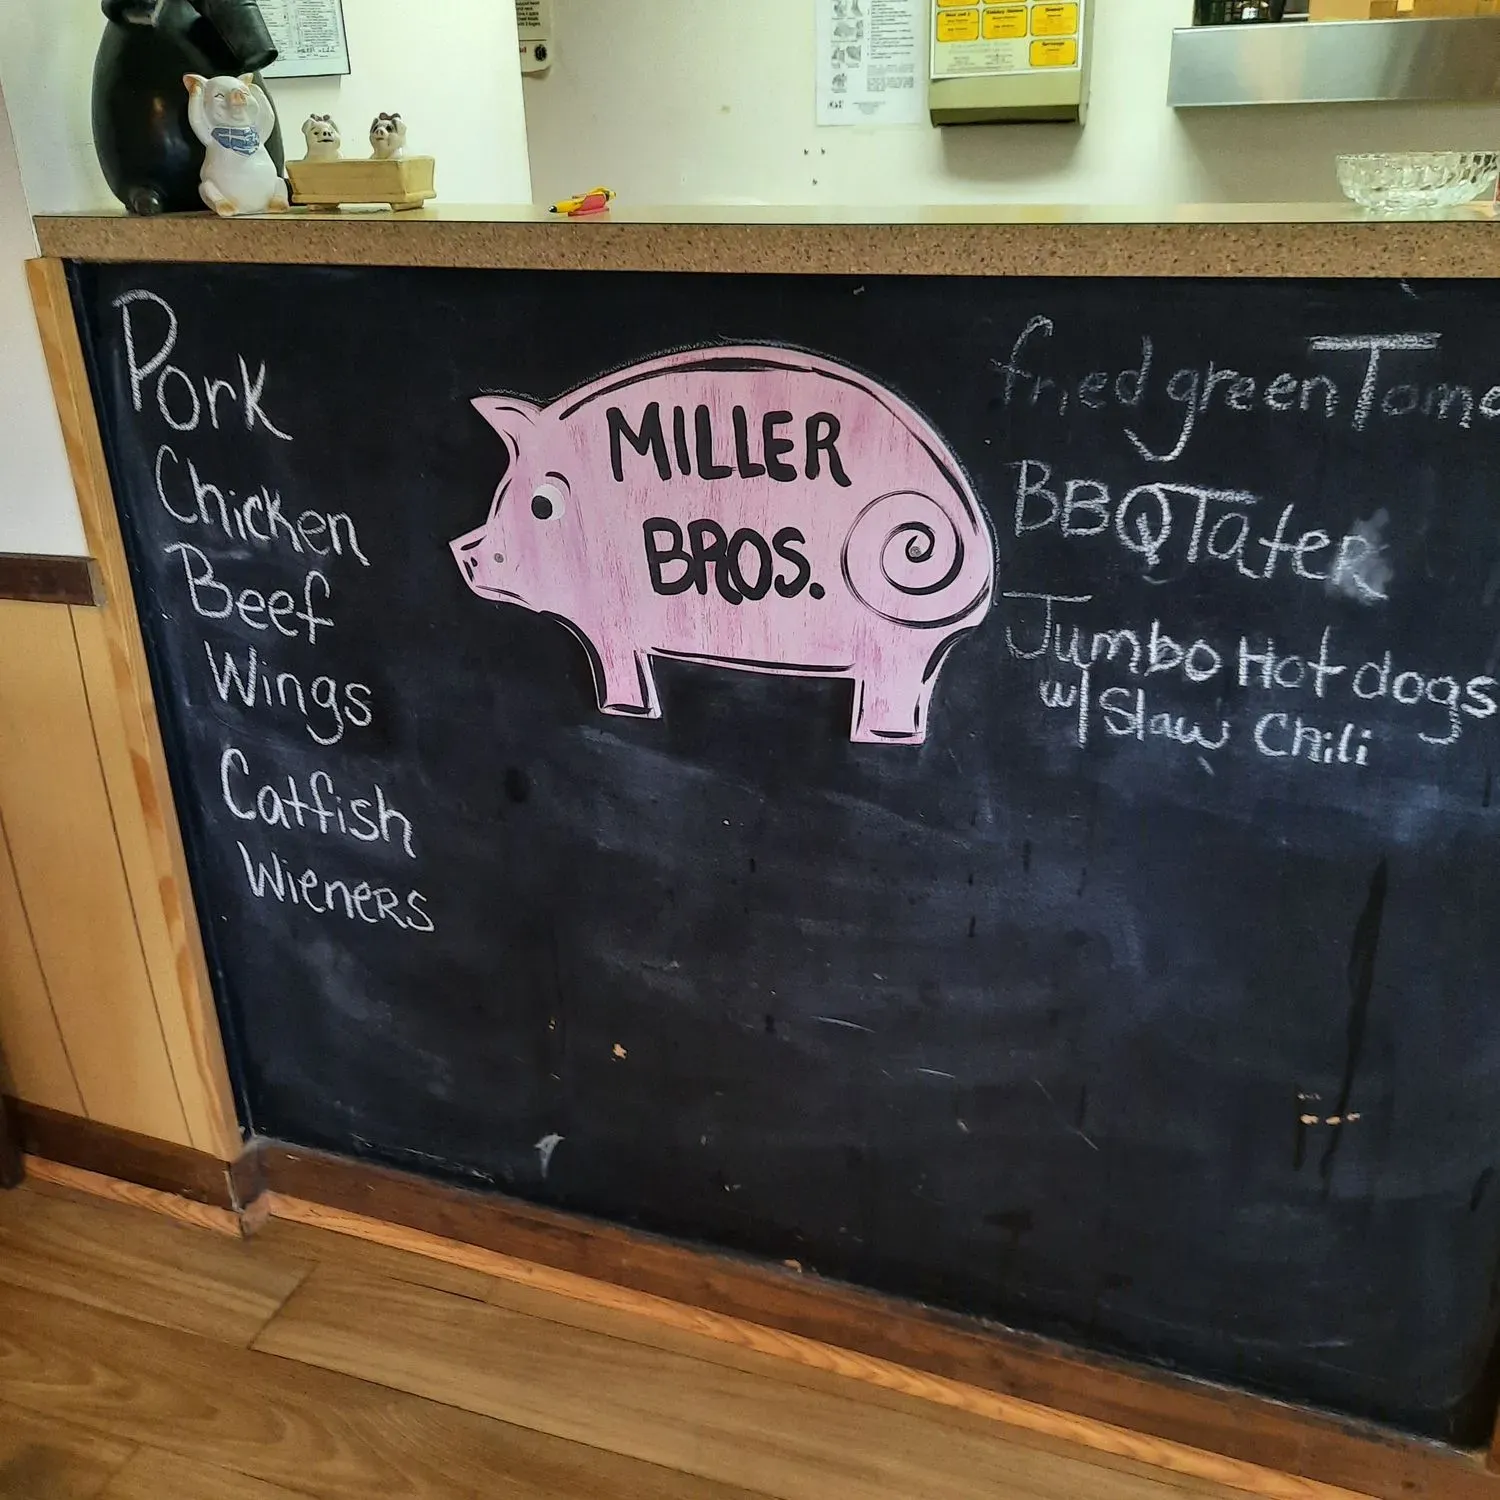 Pork
Chicken
Beef
Wings
Catfish
Wieners
MILLER
BROS.
fried green Tomo
BBQ Tater
Jumbo Hot dogs
w/ Slaw Chili